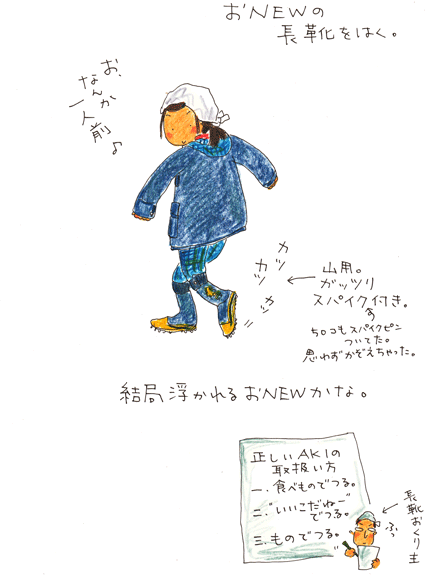 おNEWの
長靴をはく。
お、
なんか
一人前♪
カッ
カッ
カッ
山用。
ガッツリ
スパイク付き。
スパイクピン
ついてた。
思わずかぞえちゃった。
結局浮かれるおNEWかな。
正しいAKIの
取扱い方
一.食べものでつる。
二.“いいこだねー”
でつる。
三.ものでつる。
ふっ
長靴おくり主